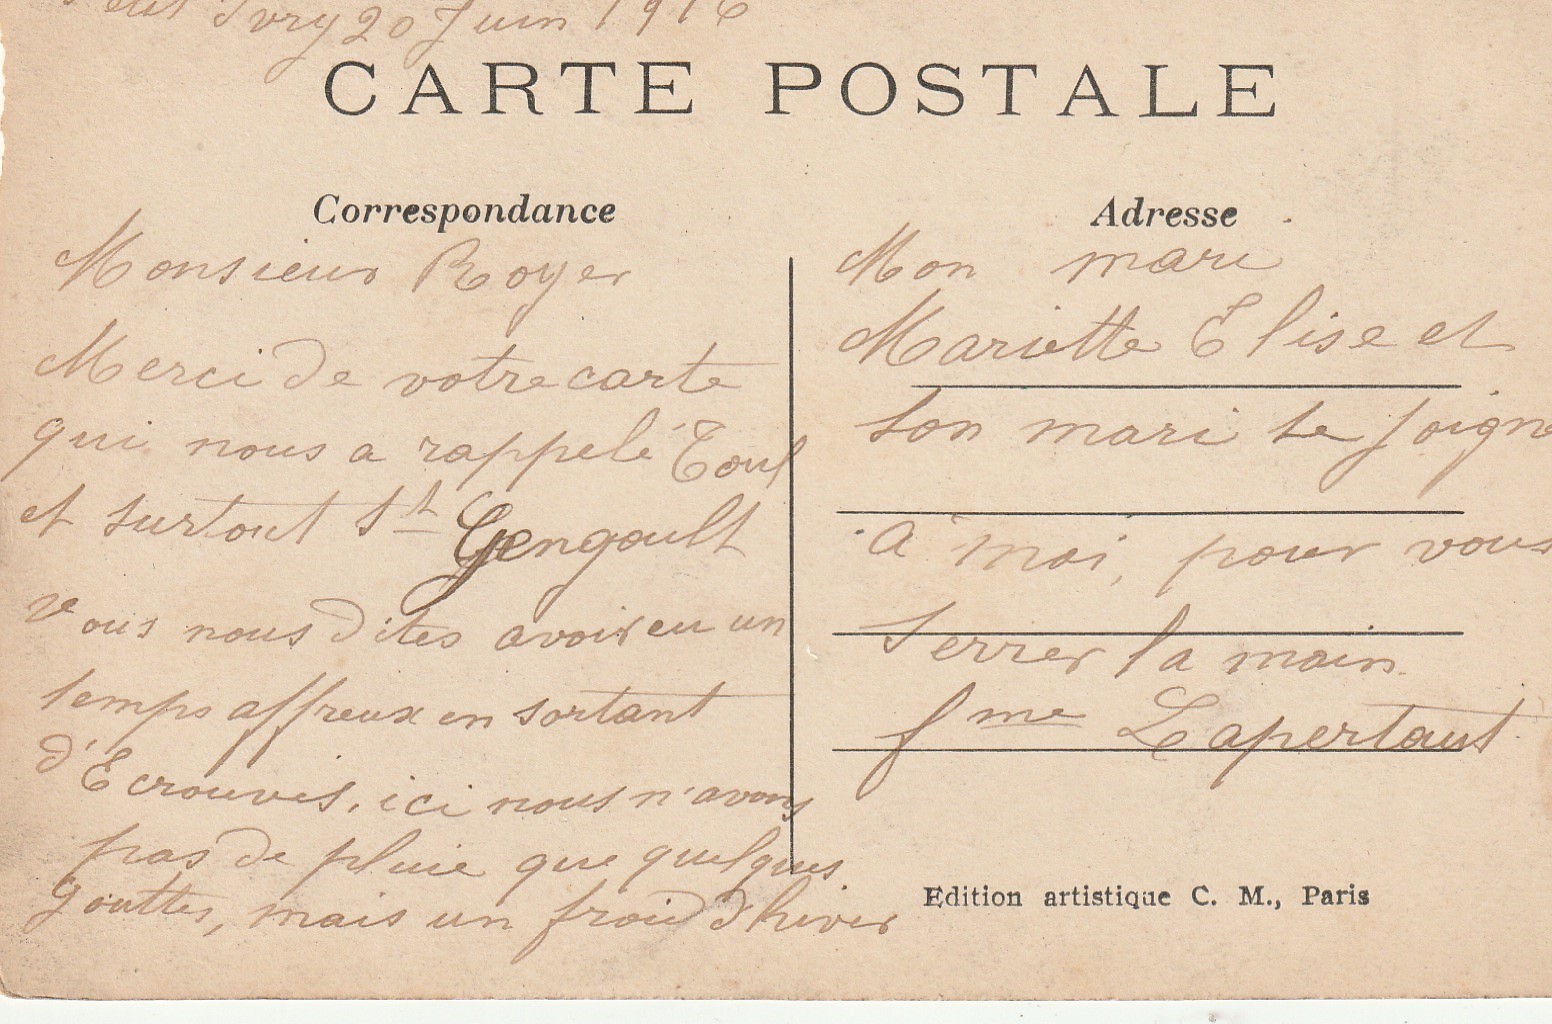 Petit Ivry 20 Juin 1916
CARTE POSTALE
Correspondance
Monsieur Royer
Merci de votre carte
qui nous a rappelé Toul
et surtout St Gengoult
Vous nous dites avoir eu un
temps affreux en sortant
d'Ecrouves, ici nous n'avons
pas de pluie que quelques
gouttes, mais un froid d'hiver
Adresse
Mon mari
Mariette Elise et
son mari se joigne
à moi, pour vous
serrer la main
fme Lapertaut
Edition artistique C. M., Paris